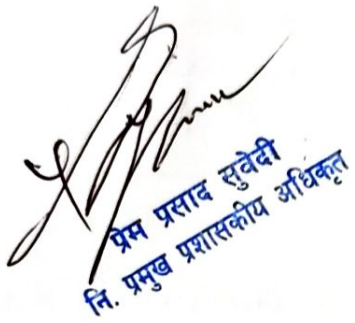 प्रेम प्रसाद सुवेदी
नि. प्रमुख प्रशासकीय अधिकृत